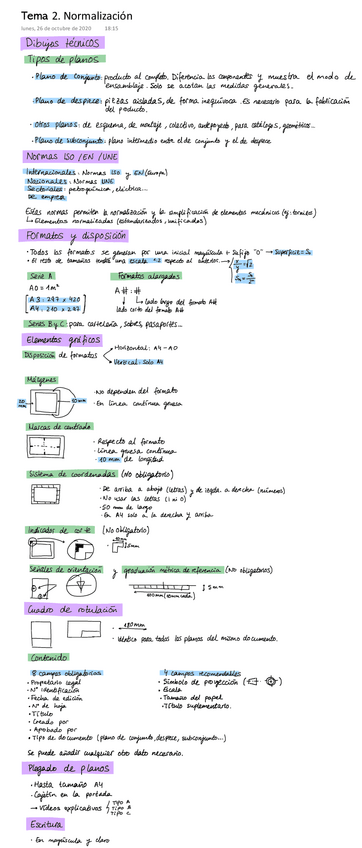 Tema 2. Normalización
lunes, 26 de octubre de 2020 18:15
Dibujos técnicos
Tipos de planos
· Plano de conjunto: producto al completo. Diferencia los componentes y muestra el modo de
ensamblaje. Solo se acotan las medidas generales.
· Plano de despiece: piezas aisladas, de forma inequívoca. Es necesario para la fabricación
del producto.
· Otros planos: de esquema, de montaje, colectivo, anteproyecto, para catálogos, geométricos...
· Plano de subconjunto: plano intermedio entre el de conjunto y el de despiece
Normas ISO / EN / UNE
Internacionales: Normas ISO y EN (Europa)
Nacionales: Normas UNE
Sectoriales: petroquímica, eléctrica...
De empresa
Estas normas permiten la normalización y la simplificación de elementos mecánicos (ej: tornillos)
↳ Elementos normalizados (estandarizados, unificados)
Formatos y disposición
· Todos los formatos se generan por una inicial mayúscula + Sufijo "0" → Superficie = S₀
· El resto de tamaños tendrá una escala respecto al anterior →
Serie A
Formatos alargados
A0 = 1m²
A# : #
A3: 297 x 420
↳ lado largo del formato A#
A4: 210 x 297
lado corto del formato A#
Series B y C: para cartelería, sobres, pasaportes...
Elementos gráficos
Disposición de formatos
Horizontal: A4 - A0
Vertical: Solo A4
Márgenes
20 mm
10 mm
· No dependen del formato
· En línea continua gruesa
Marcas de centrado
· Respecto al formato
· Línea gruesa continua
· 10 mm de longitud
Sistema de coordenadas (No obligatorio)
· De arriba a abajo (letras) y de izqda. a derecha (números)
· No usar las letras (I ni O)
· 50 mm de largo
· En A4 solo a la derecha y arriba
Indicador de corte (No obligatorio)
10mm
5mm
Señales de orientación y graduación métrica de referencia (No obligatorios)
5 mm
100 mm (10 mm cada)
Cuadro de rotulación
180mm
· Idéntico para todos los planos del mismo documento.
Contenido
8 campos obligatorios
4 campos recomendables
· Propietario legal
· Símbolo de proyección
· Nº identificación
· Escala
· Fecha de edición
· Tamaño del papel
· Nº de hoja
· Título suplementario.
· Título
· Creado por
· Aprobado por
· Tipo de documento (plano de conjunto, despiece, subconjunto...)
Se puede añadir cualquier otro dato necesario.
Plegado de planos
· Hasta tamaño A4
· Cajetín en la portada
→ Vídeos explicativos
Tipo A
Tipo B
Tipo C
Escritura
· En mayúscula y claro